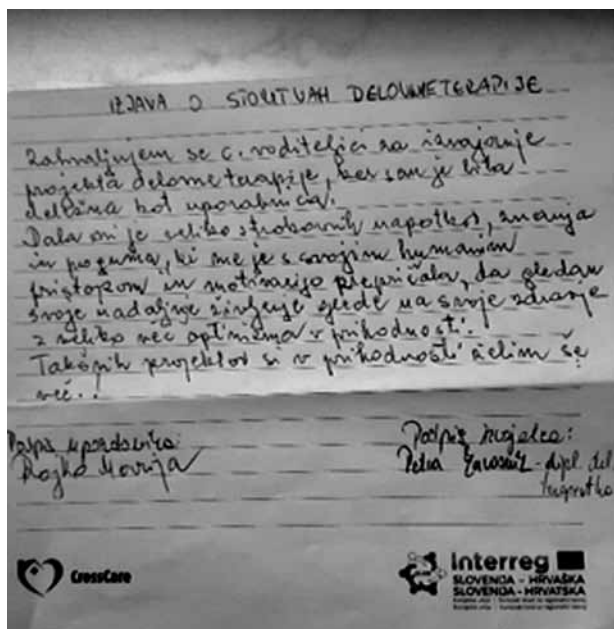 IZJAVA O STORITVAH DELOVNE TERAPIJE
Zahvaljujem se c. voditeljici za izvajanje
projekta delovne terapije, ker sem je bila
deležna kot uporabnica.
Dala mi je veliko strokovnih napotkov, znanja
in poguma, ki me je s svojim humanim
pristopom in motivacijo prepričala, da gledam
svoje nadaljnje življenje glede na svoje zdravje
z veliko več optimizma v prihodnosti.
Takšnih projektov si v prihodnosti želim še
več..
Podpis uporabnika:
Marija
Podpis izvajalca:
Petra - dipl. del.
CrossCare
Interreg
SLOVENIJA - HRVAŠKA
SLOVENIJA - HRVATSKA